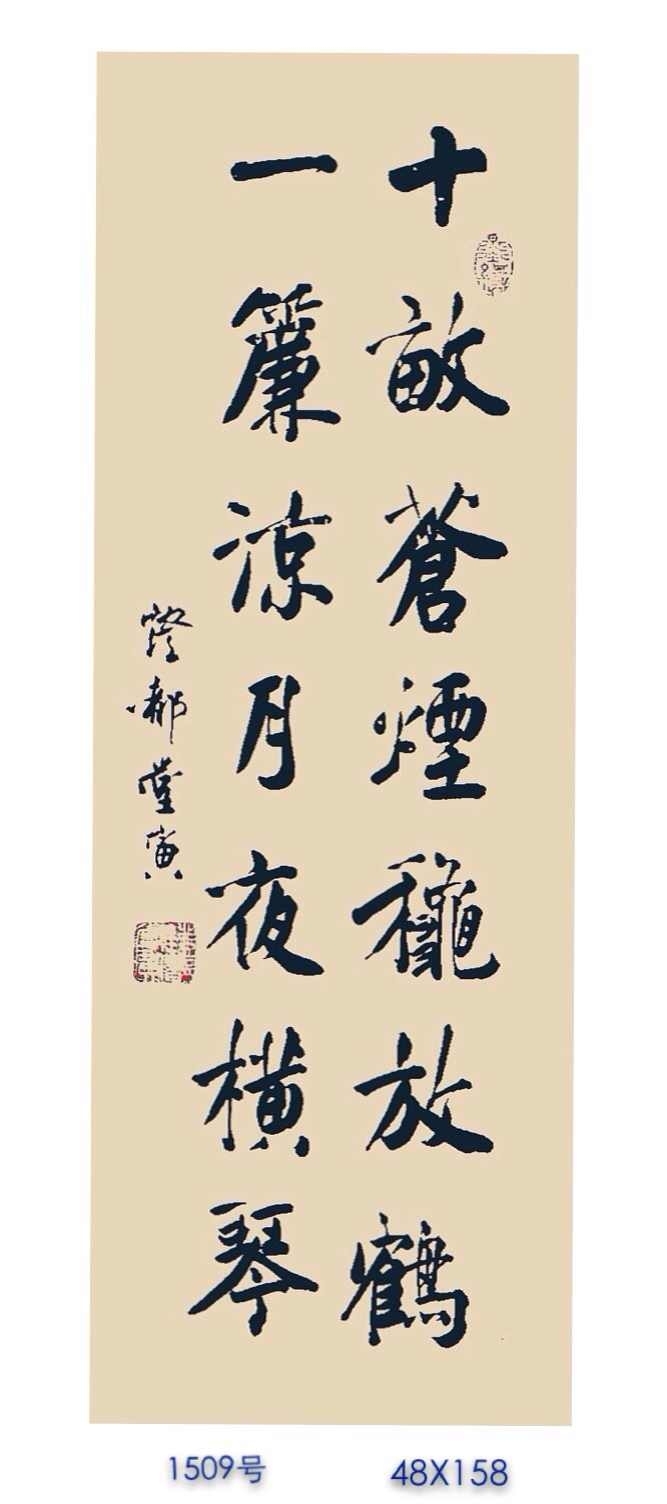 十畝蒼煙穐放鶴
一簾涼月夜橫琴
堂寅
1509号
48X158